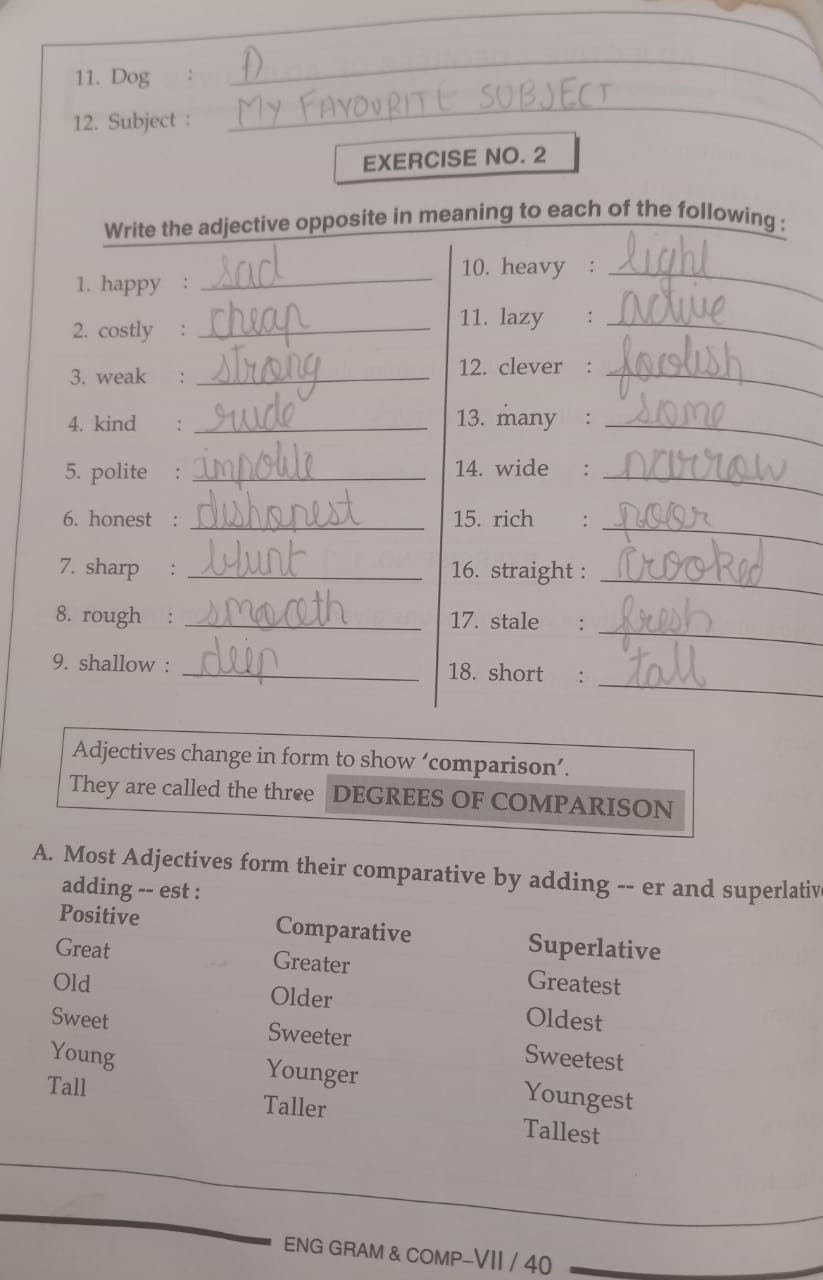 11. Dog : A
12. Subject : MY FAVOURITE SUBJECT
EXERCISE NO. 2
Write the adjective opposite in meaning to each of the following :
1. happy : sad
2. costly : cheap
3. weak : strong
4. kind : rude
5. polite : impolite
6. honest : dishonest
7. sharp : blunt
8. rough : smooth
9. shallow : deep
10. heavy : light
11. lazy : active
12. clever : foolish
13. many : some
14. wide : narrow
15. rich : poor
16. straight : crooked
17. stale : fresh
18. short : tall
Adjectives change in form to show ‘comparison’.
They are called the three DEGREES OF COMPARISON
A. Most Adjectives form their comparative by adding -- er and superlativ
adding -- est :
Positive Comparative Superlative
Great Greater Greatest
Old Older Oldest
Sweet Sweeter Sweetest
Young Younger Youngest
Tall Taller Tallest
ENG GRAM & COMP–VII / 40